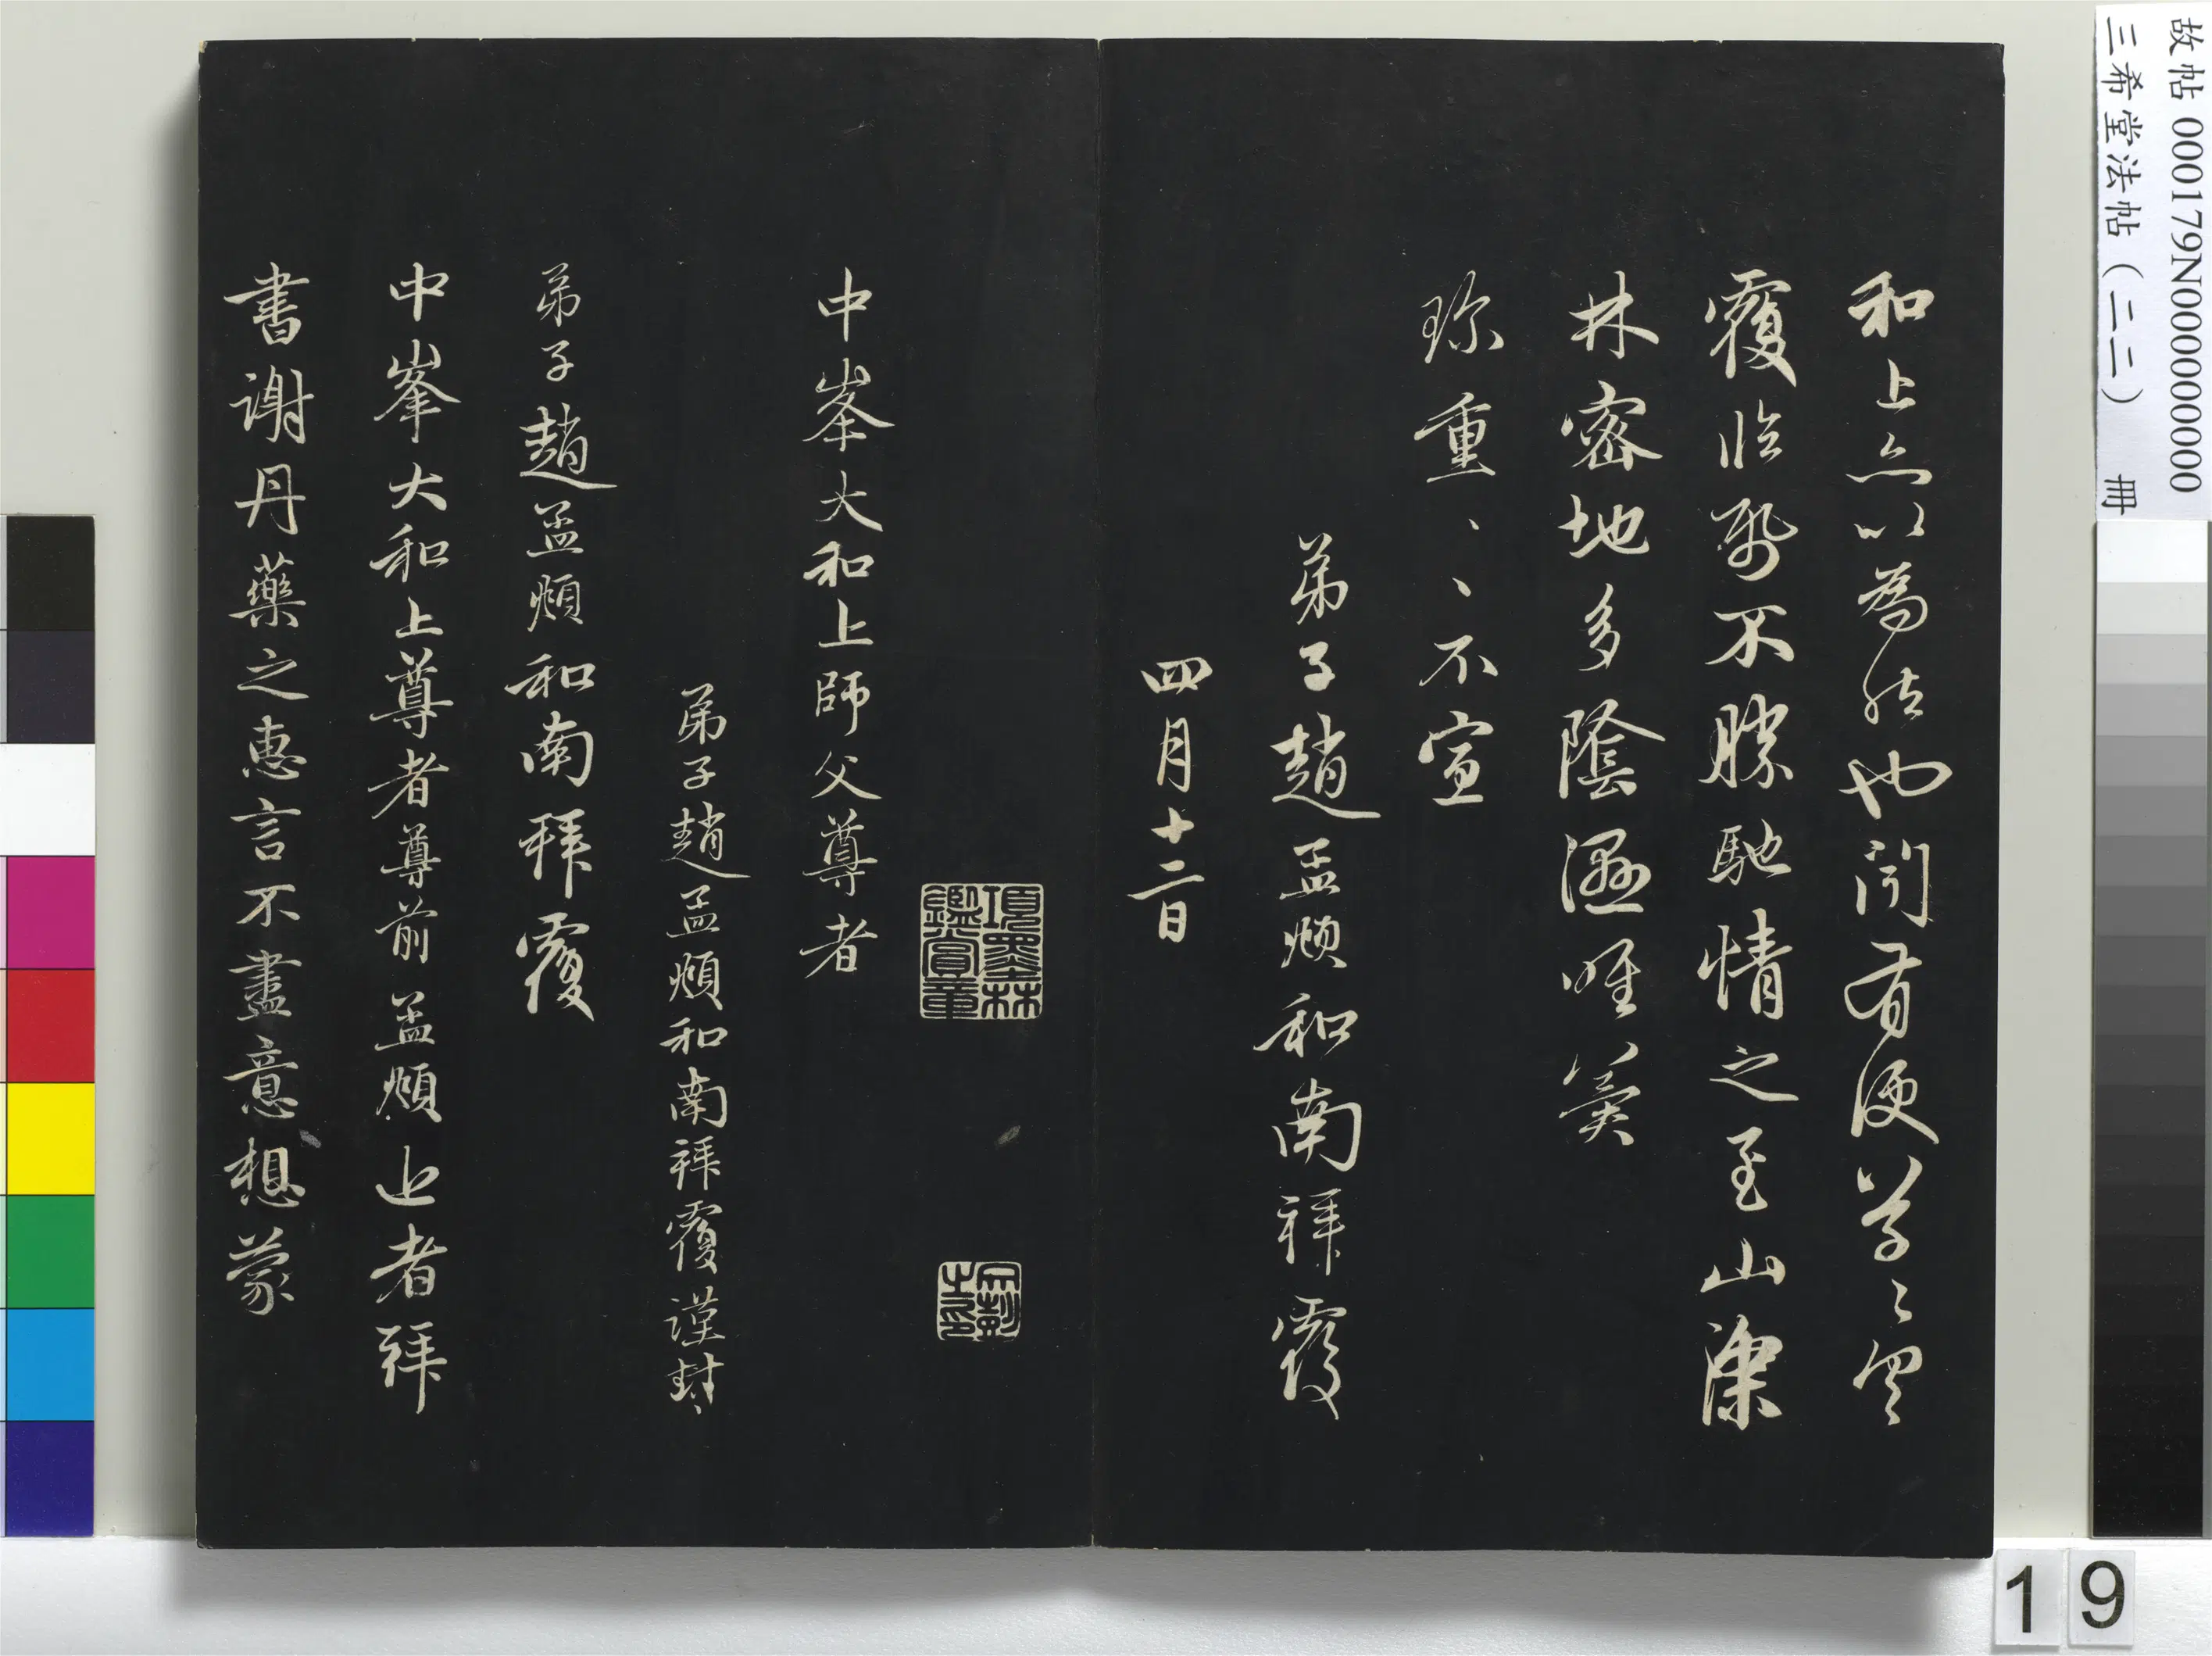 和上亦以為然也閒有便草々具
覆臨紙不勝馳情之至山深
林密地多陰濕唯冀
珍重ヽヽ不宣
弟子趙孟頫和南拜覆
四月十二日
項墨林鑑賞章
中峯大和上師父尊者
弟子趙孟頫和南拜覆謹封
弟子趙孟頫和南拜覆
中峯大和上尊者尊前孟頫近者拜
書謝丹藥之惠言不盡意想蒙
故帖 000179N000000000
三希堂法帖（二二） 冊
19